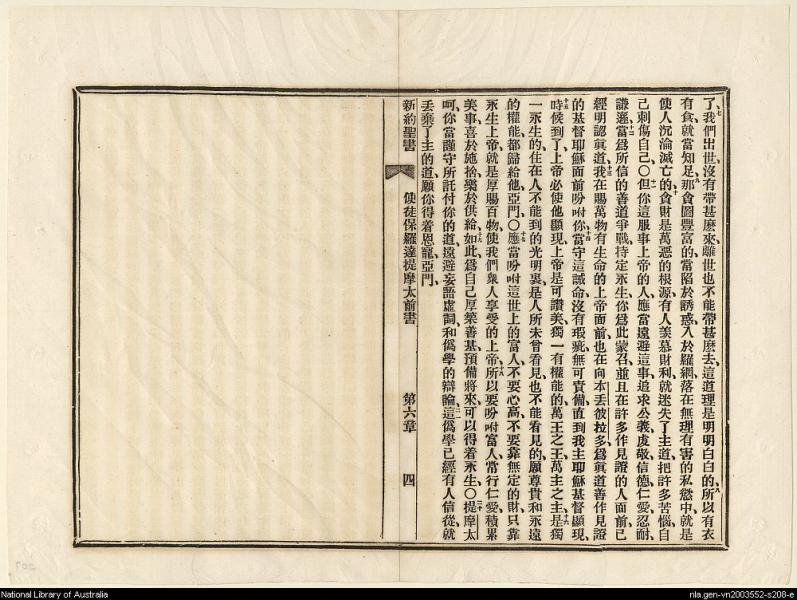 了、我們出世、沒有帶甚麽來、離世也不能帶甚麽去、這道理是明明白白的、所以有衣
有食、就當知足、那貪圖豐富的、當陷於誘惑、入於羅網、落在無理有害的私慾中、就是
使人沉淪滅亡的、貪財是萬惡的根源、有人羡慕財利、就迷失了主道、把許多苦惱自
己刺傷自己、〇但你這服事上帝的人、應當遠避這事、追求公義、虔敬、信德、仁愛、忍耐、
謙遜、當爲所信的善道爭戰、持定永生、你爲此蒙召、並且在許多作見證的人面前、已
經明認眞道、我在賜萬物有生命的上帝面前、也在向本丢彼拉多爲眞道善作見證
的基督耶穌面前吩咐你、當守這誡命、沒有瑕疵、無可責備、直到我主耶穌基督顯現、
時候到了、上帝必使他顯現、上帝是可讚美、獨一有權能的、萬王之王、萬主之主、是獨
一永生的、住在人不能到的光明裏、是人所未曾看見、也不能看見的、願尊貴和永遠
的權能、都歸給他、亞門、〇應當吩咐這世上的富人、不要心高、不要靠無定的財、只靠
永生上帝、就是厚賜百物、使我們衆人享受的上帝、所以要吩咐富人、常行仁愛、積累
美事、喜於施捨、樂於供給、如此爲自己厚築善基、預備將來、可以得着永生、〇提摩太
呵、你當謹守所託付你的道、遠避妄語虛詞、和僞學的辯論、這僞學已經有人信從、就
丢棄了主的道、願你得着恩寵、亞門、
新約聖書 使徒保羅達提摩太前書 第六章 四
National Library of Australia
nla.gen-vn2003552-s208-e